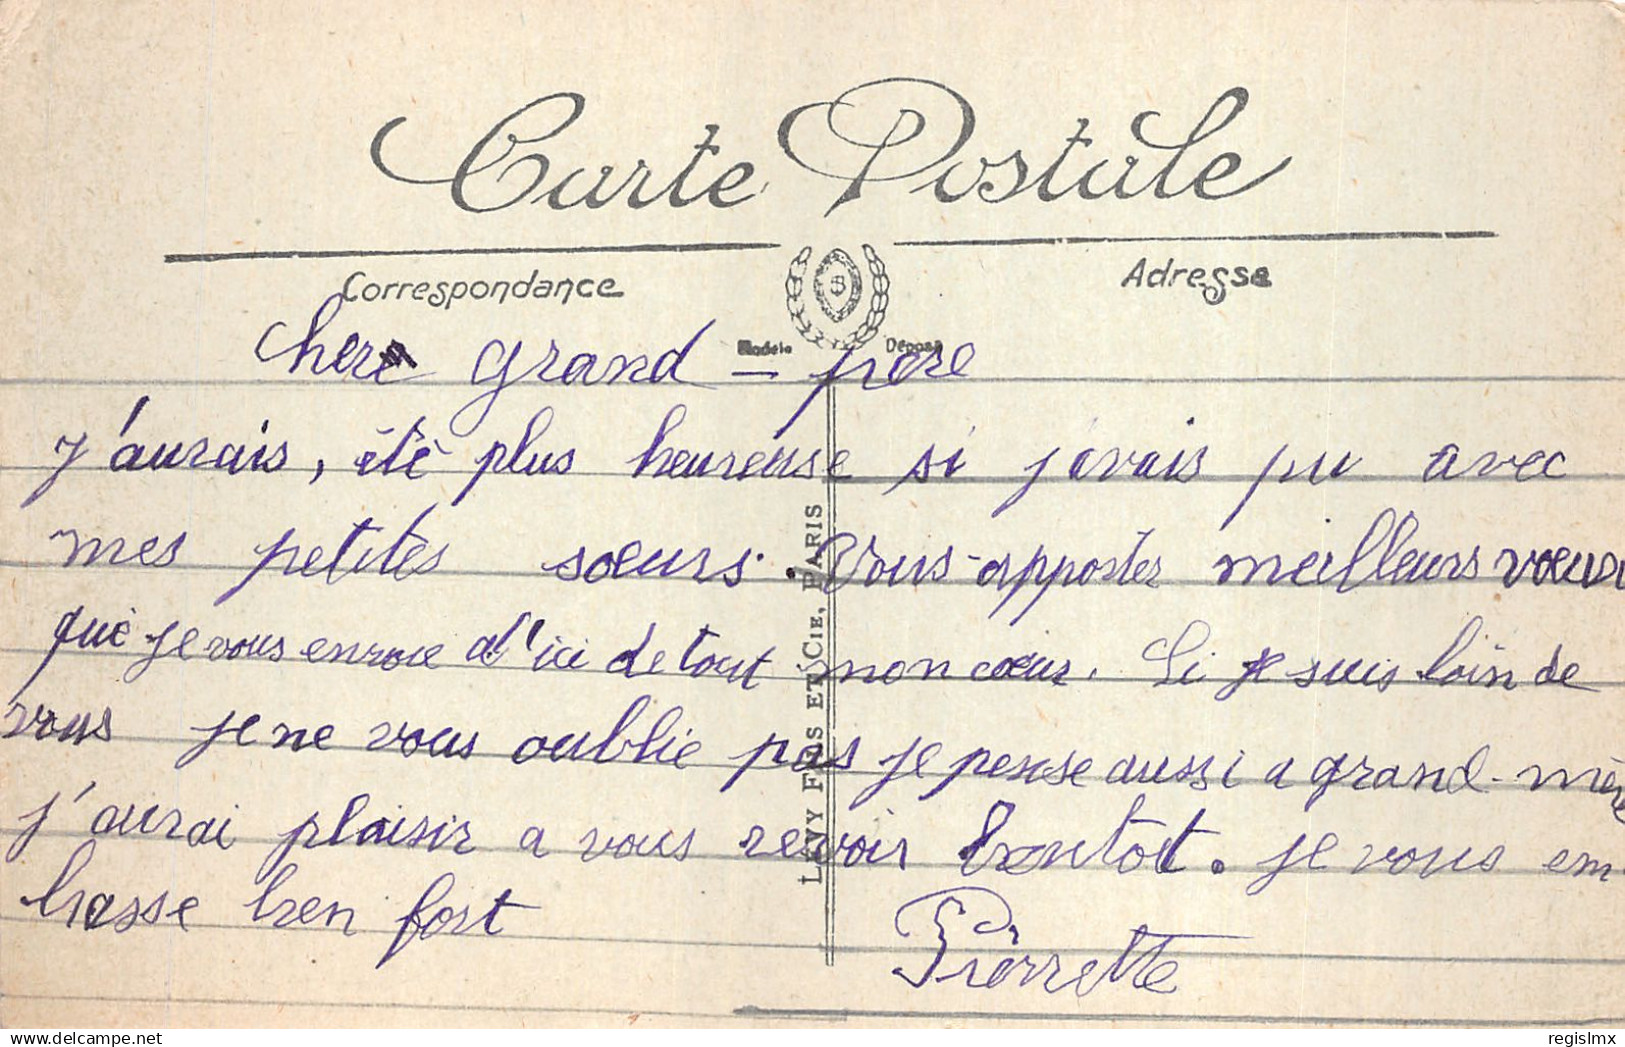 Carte Postale
Correspondance
Adresse
Modèle Déposé
chere grand-père
J'aurais, été plus heureuse si j'avais pu avec
mes petites sœurs. Vous apporter meilleurs voeux
que je vous envoie d'ici de tout mon cœur. Si je suis loin de
vous je ne vous oublie pas je pense aussi a grand-mère
j'aurai plaisir a vous revoir bientot. je vous em-
brasse bien fort
Pierrette
LÉVY FILS ET CIE, PARIS
delcampe.net
regislmx